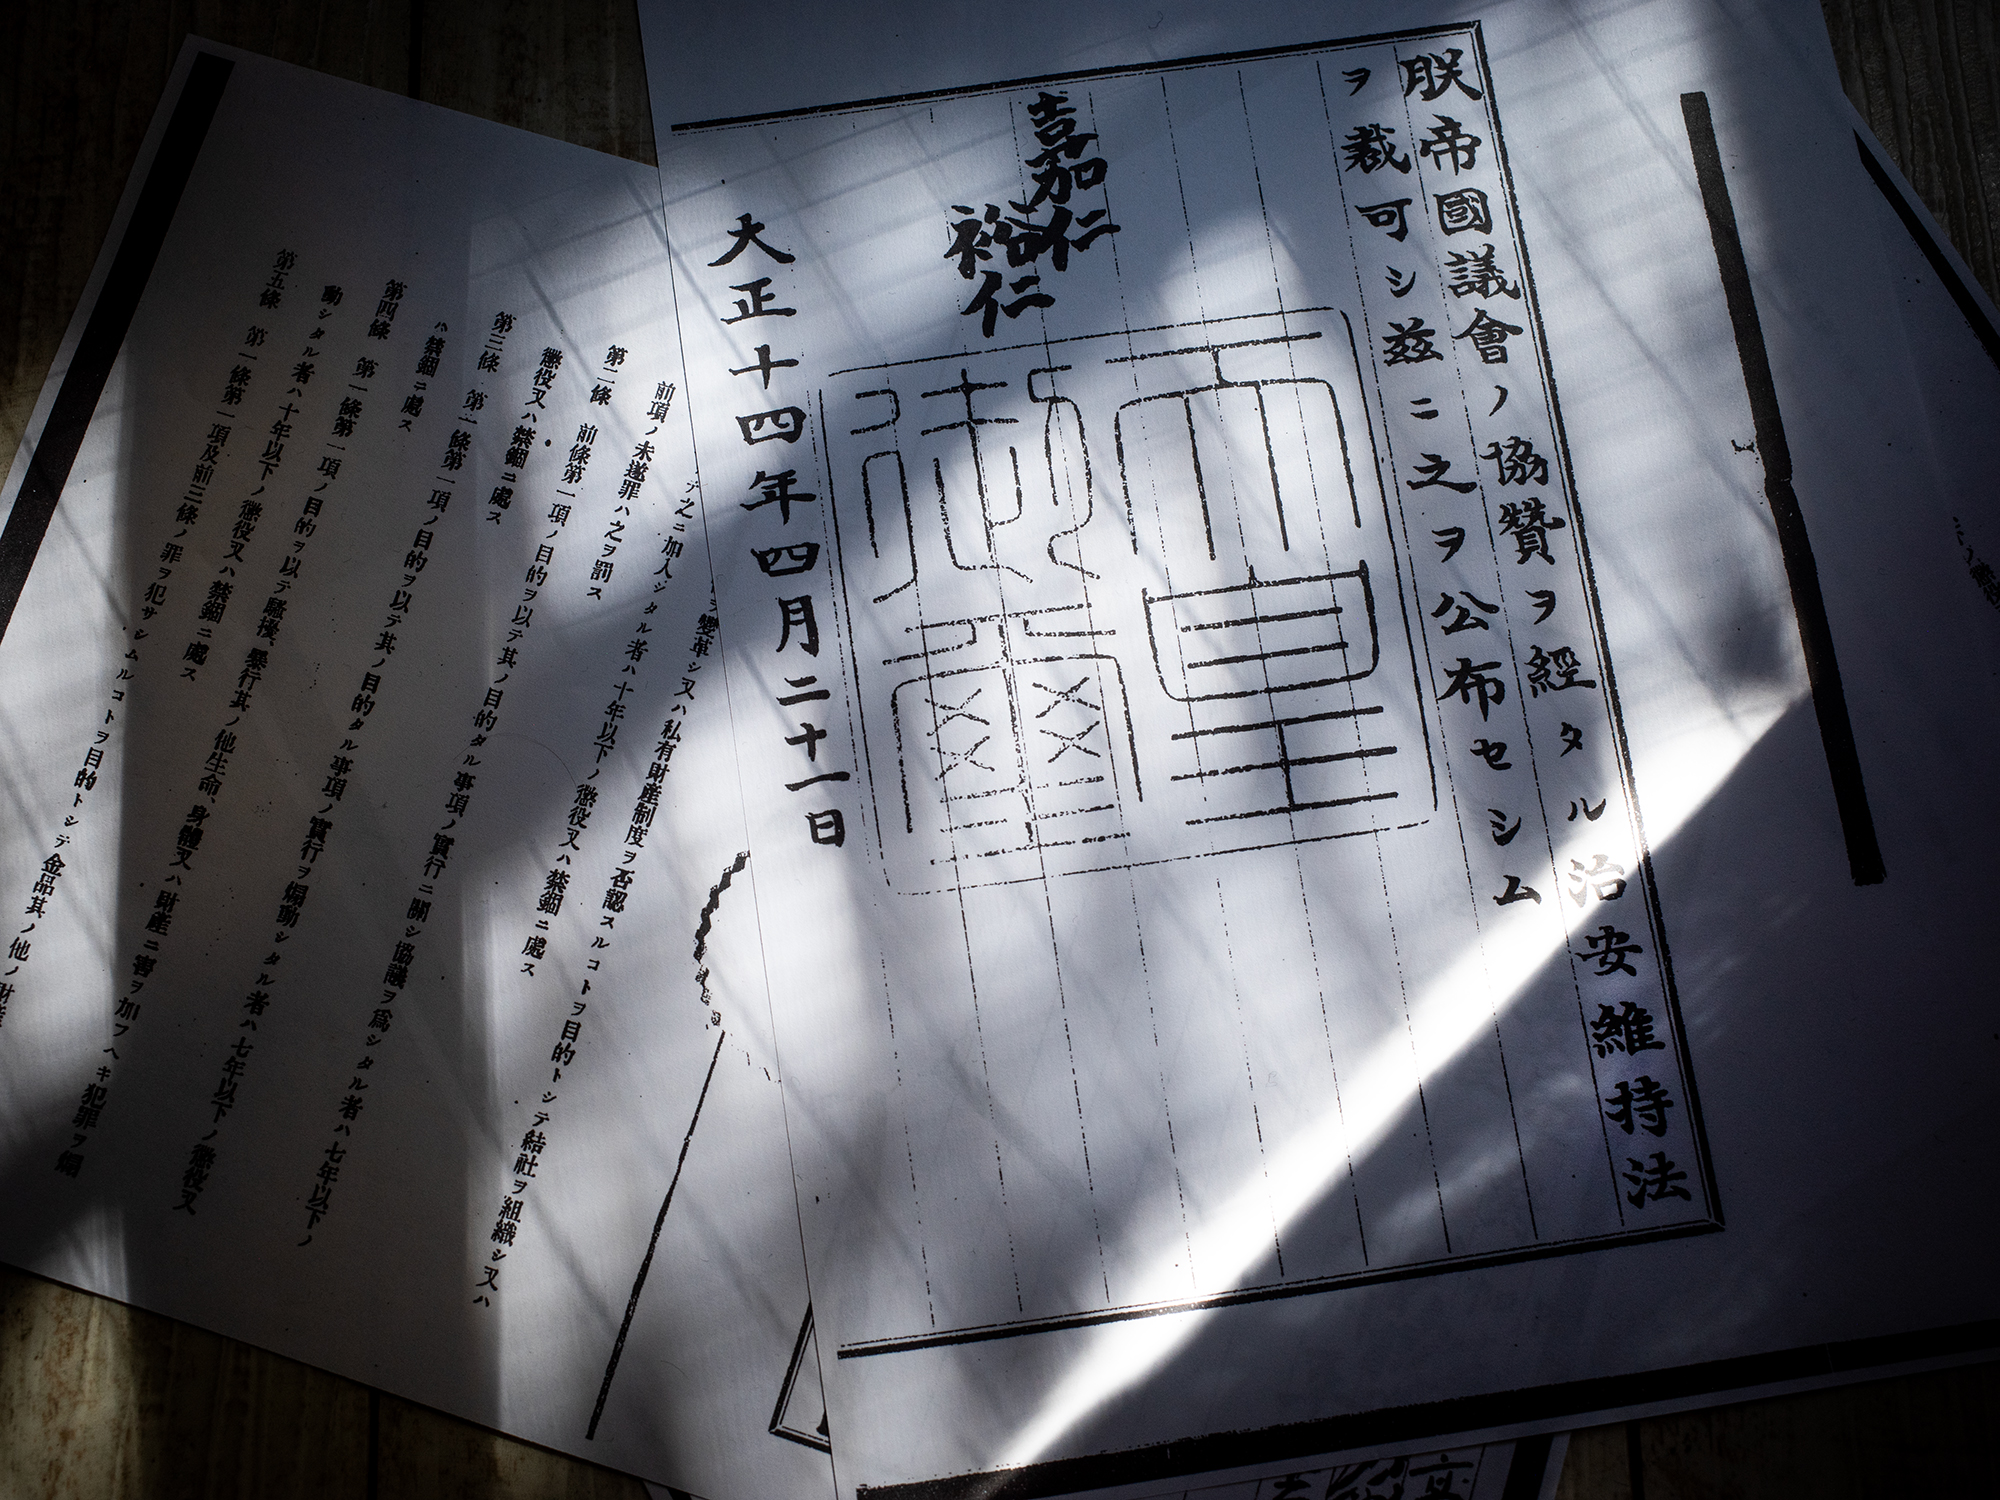 朕帝國議會ノ協贊ヲ經タル治安維持法
ヲ裁可シ茲ニ之ヲ公布セシム
嘉仁
裕仁
天皇
御璽
大正十四年四月二十一日
ヲ變革シ又ハ私有財産制度ヲ否認スルコトヲ目的トシテ結社ヲ組織シ又ハ
テ之ニ加入シタル者ハ十年以下ノ懲役又ハ禁錮ニ處ス
前項ノ未遂罪ハ之ヲ罰ス
第二條 前條第一項ノ目的ヲ以テ其ノ目的タル事項ノ實行ニ關シ協議ヲ爲シタル者ハ七年以下ノ
懲役又ハ禁錮ニ處ス
第三條 第一條第一項ノ目的ヲ以テ其ノ目的タル事項ノ實行ヲ煽動シタル者ハ七年以下ノ懲役又
ハ禁錮ニ處ス
第四條 第一條第一項ノ目的ヲ以テ騷擾、暴行其ノ他生命、身體又ハ財產ニ害ヲ加フヘキ犯罪ヲ煽
動シタル者ハ十年以下ノ懲役又ハ禁錮ニ處ス
第五條 第一條第一項及前三條ノ罪ヲ犯サシムルコトヲ目的トシテ金品其ノ他ノ財產